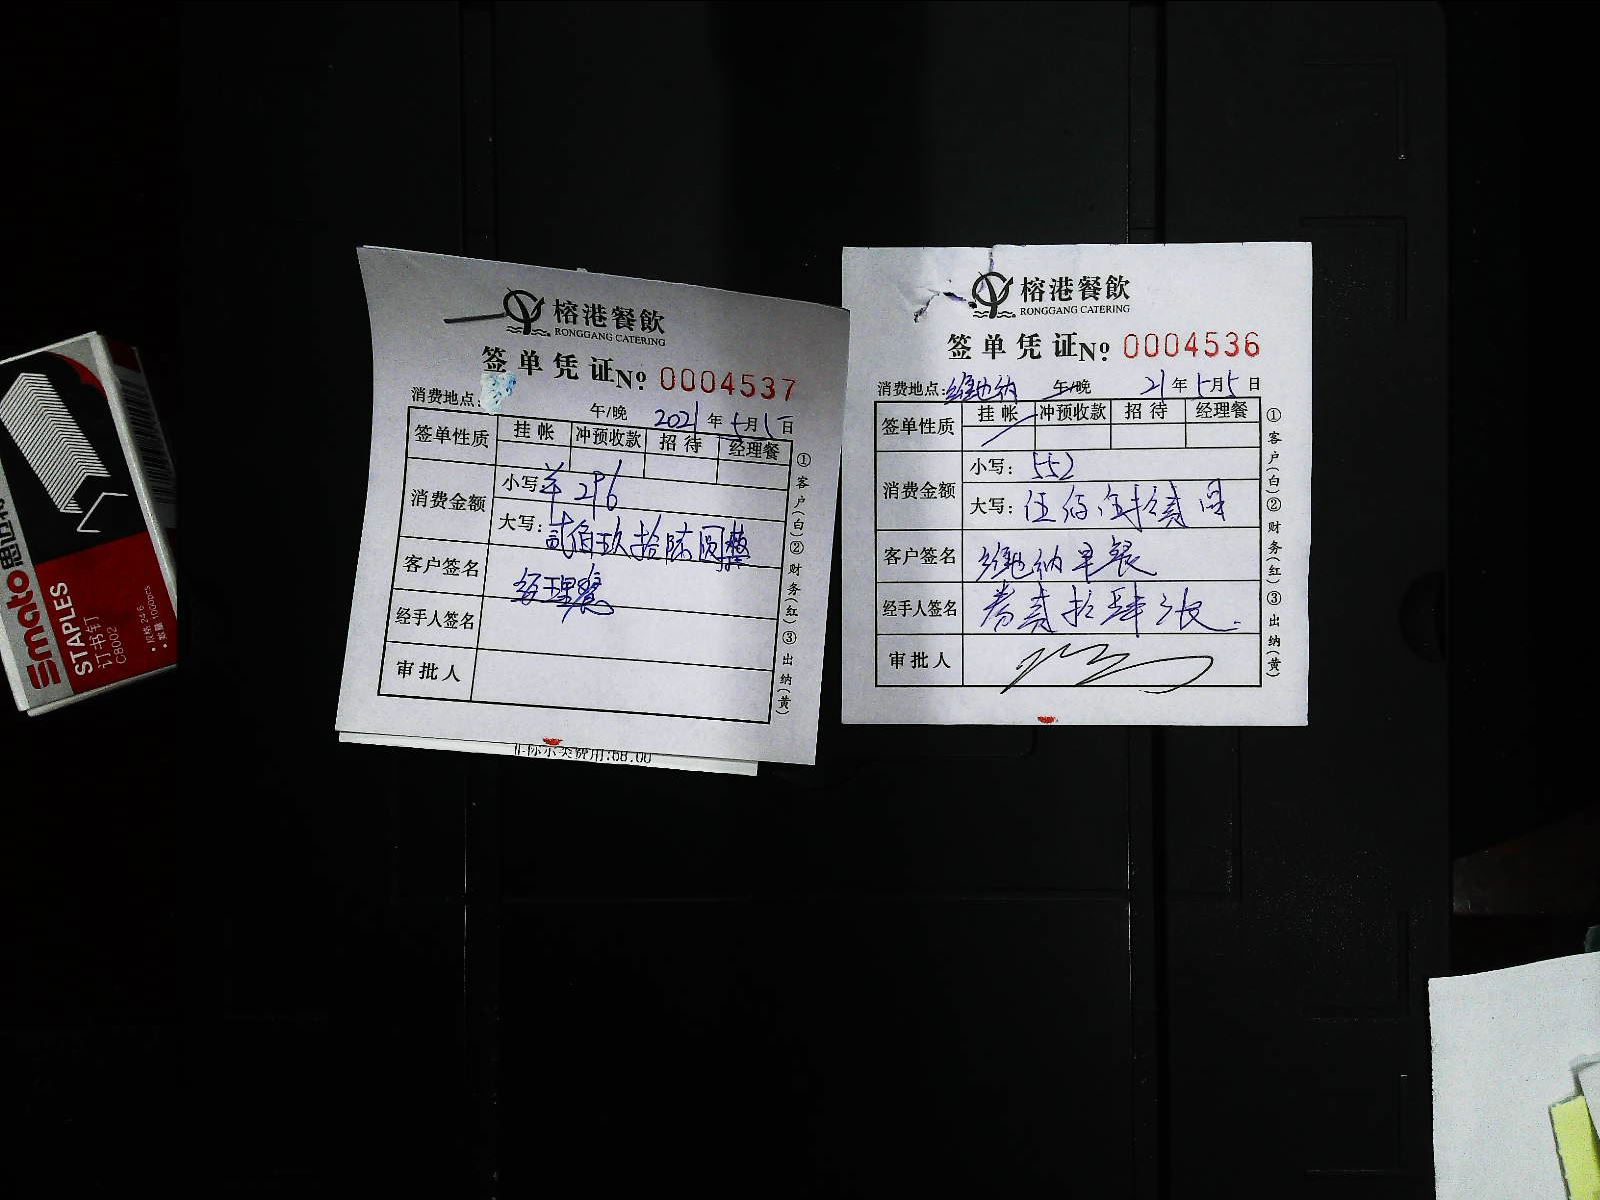 榕港餐飲
RONGGANG CATERING
签单凭证 No 0004537
消费地点: 午/晚 2021年5月5日
签单性质 挂帐 冲预收款 招待 经理餐
消费金额 小写: 296
大写: 贰佰玖拾陆圆整
客户签名 经理餐
经手人签名
审批人
①客户(白)②财务(红)③出纳(黄)
费用:68.00
榕港餐飲
RONGGANG CATERING
签单凭证 No 0004536
消费地点: 维也纳 午/晚 21年5月5日
签单性质 挂帐 冲预收款 招待 经理餐
消费金额 小写: 552
大写: 伍佰伍拾贰圆
客户签名 维也纳早餐
经手人签名 贰拾肆张.
审批人
①客户(白)②财务(红)③出纳(黄)
Smato
STAPLES
订书钉
C8002
·规格:24/6
·数量:1000pcs